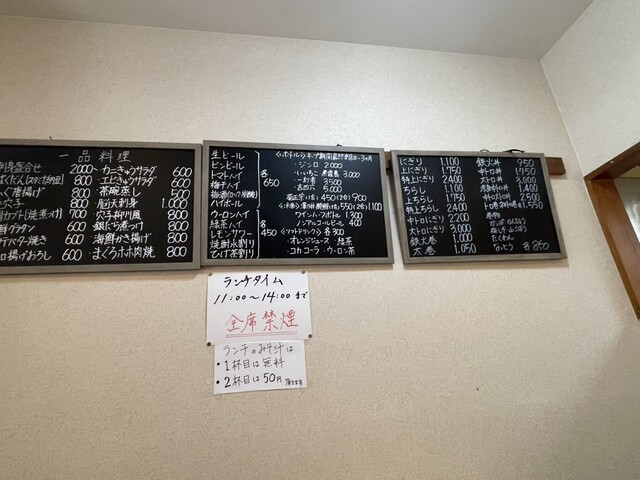 一品料理
刺身盛合せ 2000〜
ばくだん(スタミナ納豆) 800
ふぐ唐揚げ 800
穴子 800
700
グラタン 600
焼き 600
揚げおろし 600
カニきゅうサラダ 600
エビきゅうサラダ 600
茶碗蒸し 500
刺身 1.000
穴子柳川風 800
銀だら煮つけ 800
海鮮かき揚げ 800
まぐろホホ肉焼 800
生ビール
ビンビール
トマトハイ
梅干ハイ
ハイボール
各 650
ウーロンハイ
緑茶ハイ
レモンサワー
焼酎水割り
ひげ茶割り
各 450
<ボトル>キープ期間最終来店日〜3ヶ月
・ジンロ 2000
・いいちこ 黒霧島 3.000
・吉四六 5.000
450(2合)900
550(2合)1100
ワインハーフボトル 1.300
ノンアルコールビール 400
<ソフトドリンク>各300
・オレンジジュース・緑茶
・コカコーラ・ウーロン茶
にぎり 1.100
上にぎり 1.750
特上にぎり 2.400
ちらし 1.100
上ちらし 1.750
特上ちらし 2.400
中トロにぎり 2.200
大トロにぎり 3.000
鉄火巻 1.000
太巻 1.050
鉄火丼 950
中トロ丼 1.950
大トロ丼 2.500
1.400
1.550
巻物
かっぱ・おしんこ
梅しそ・山ごぼう
たくわん
なっとう 各350
ランチタイム
11:00〜14:00まで
全席禁煙
ランチのみそ汁は
・1杯目は無料
・2杯目は50円頂きます